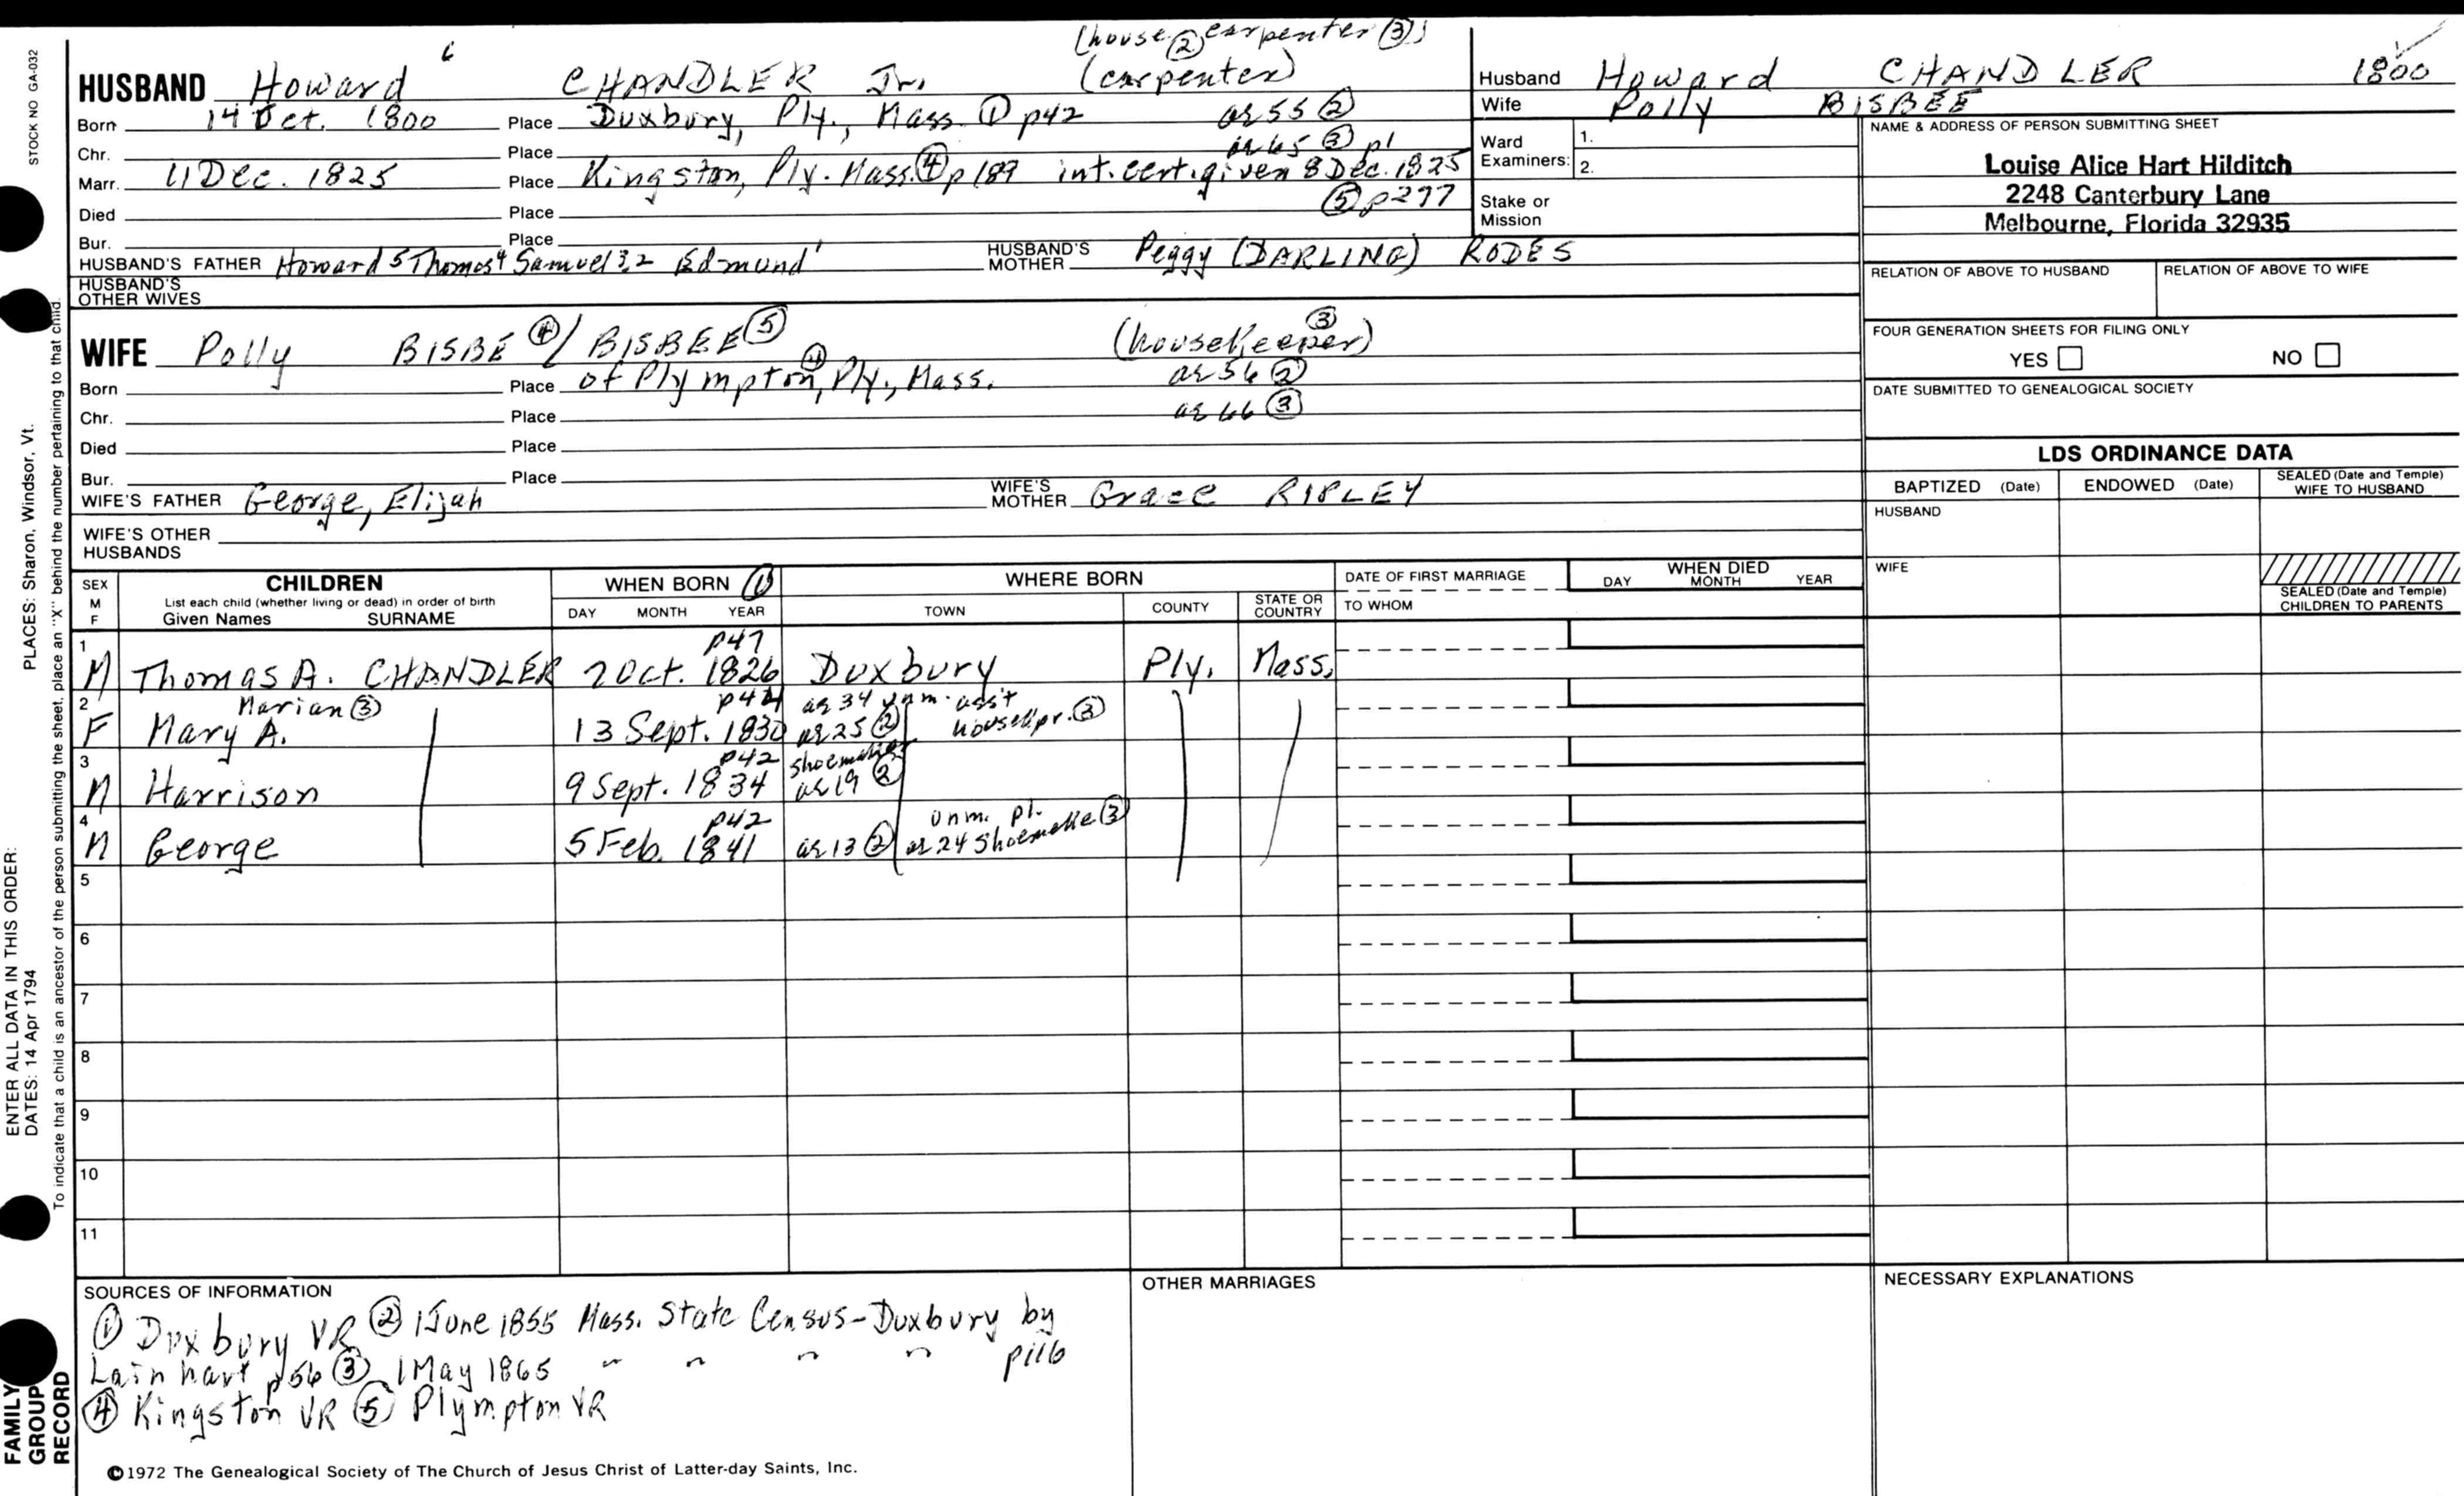 STOCK NO GA-032
PLACES: Sharon, Windsor, Vt.
ENTER ALL DATA IN THIS ORDER:
DATES: 14 Apr 1794
To indicate that a child is an ancestor of the person submitting the sheet, place an "X" behind the number pertaining to that child.
FAMILY GROUP RECORD
(house ② carpenter ③)
HUSBAND Howard 6 CHANDLER Jr. (carpenter)
Born 14 Oct. 1800 Place Duxbury, Ply., Mass. ① p42 ae 55 ②
Chr. Place ae 65 ③ p1
Marr. 11 Dec. 1825 Place Kingston, Ply. Mass. ④ p189 int. cert. given 8 Dec. 1825
Died Place ⑤ p277
Bur. Place
HUSBAND'S FATHER Howard 5 Thomas 4 Samuel 3,2 Edmund 1 HUSBAND'S MOTHER Peggy (DARLING) RODES
HUSBAND'S OTHER WIVES
WIFE Polly BISBE ④ / BISBEE ⑤ (housekeeper) ③
Born Place of Plympton, ④ Ply., Mass. ae 56 ②
Chr. Place ae 66 ③
Died Place
Bur. Place
WIFE'S FATHER George, Elijah WIFE'S MOTHER Grace RIPLEY
WIFE'S OTHER HUSBANDS
Husband Howard CHANDLER 1800
Wife Polly BISBEE
Ward Examiners: 1.
2.
Stake or Mission
NAME & ADDRESS OF PERSON SUBMITTING SHEET
Louise Alice Hart Hilditch
2248 Canterbury Lane
Melbourne, Florida 32935
RELATION OF ABOVE TO HUSBAND RELATION OF ABOVE TO WIFE
FOUR GENERATION SHEETS FOR FILING ONLY
YES NO
DATE SUBMITTED TO GENEALOGICAL SOCIETY
LDS ORDINANCE DATA
BAPTIZED (Date) ENDOWED (Date) SEALED (Date and Temple) WIFE TO HUSBAND
HUSBAND
WIFE
SEALED (Date and Temple) CHILDREN TO PARENTS
SEX M F CHILDREN WHEN BORN ① WHERE BORN DATE OF FIRST MARRIAGE WHEN DIED
List each child (whether living or dead) in order of birth
Given Names SURNAME DAY MONTH YEAR TOWN COUNTY STATE OR COUNTRY TO WHOM DAY MONTH YEAR
p47
1 M Thomas A. CHANDLER 2 Oct. 1826 Duxbury Ply. Mass.
Marian ③ p42 ae 34 unm. ass't
2 F Mary A. 13 Sept. 1830 ae 25 ② housekpr. ③
p42 shoemaker
3 M Harrison 9 Sept. 1834 ae 19 ②
p42 unm. p1.
4 M George 5 Feb. 1841 ae 13 ② ae 24 Shoemake ③
5
6
7
8
9
10
11
SOURCES OF INFORMATION
① Duxbury VR ② 1 June 1855 Mass. State Census - Duxbury by
Lainhart p56 ③ 1 May 1865 " " " " p116
④ Kingston VR ⑤ Plympton VR
OTHER MARRIAGES
NECESSARY EXPLANATIONS
©1972 The Genealogical Society of The Church of Jesus Christ of Latter-day Saints, Inc.